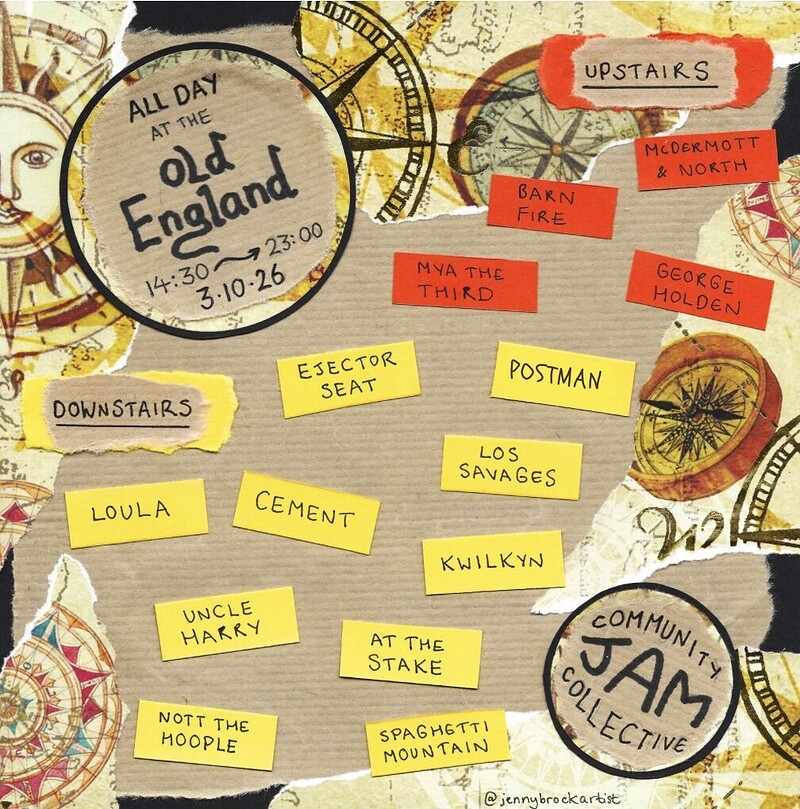 ALL DAY
AT THE
OLD
England
14:30 → 23:00
3·10·26
UPSTAIRS
McDERMOTT
& NORTH
BARN
FIRE
MYA THE
THIRD
GEORGE
HOLDEN
DOWNSTAIRS
EJECTOR
SEAT
POSTMAN
LOS
SAVAGES
LOULA
CEMENT
KWILKYN
UNCLE
HARRY
AT THE
STAKE
NOTT THE
HOOPLE
SPAGHETTI
MOUNTAIN
COMMUNITY
JAM
COLLECTIVE
@jennybrockartist